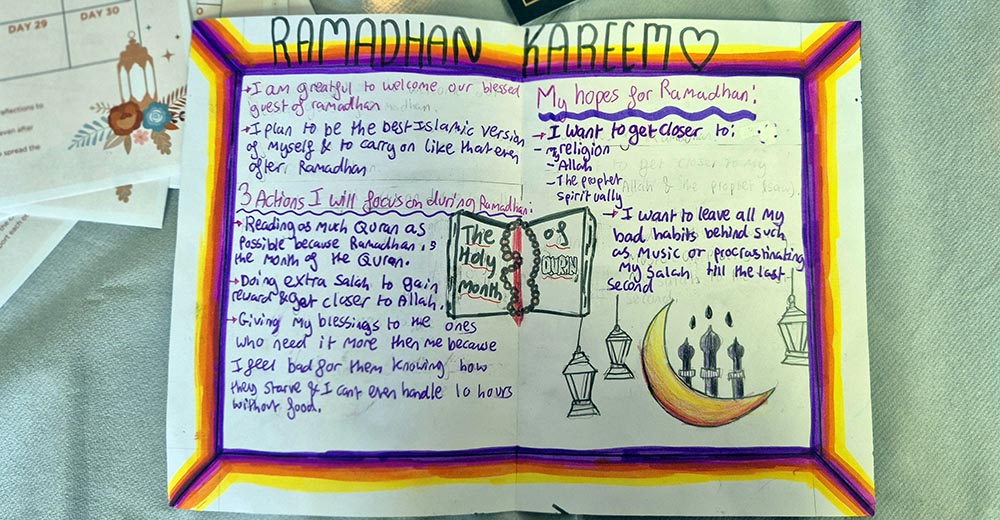 DAY 29
DAY 30
eflections to
even after
o spread the
RAMADHAN KAREEM
→ I am greatful to welcome our blessed
guest of ramadhan
→ I plan to be the best Islamic version
of myself & to carry on like that even
after Ramadhan
3 Actions I will focus on during Ramadhan:
→ Reading as much Quran as
possible because Ramadhan is
the month of the Quran.
→ Doing extra Salah to gain
reward & get closer to Allah.
→ Giving my blessings to the ones
who need it more then me because
I feel bad for them knowing how
they starve & I cant even handle 10 hours
without food.
The
Holy
month
of
My hopes for Ramadhan:
→ I want to get closer to:
- my religion
- Allah
- The prophet
spiritually
→ I want to leave all my
bad habits behind such
as Music or procrastinating
My Salah till the last
second